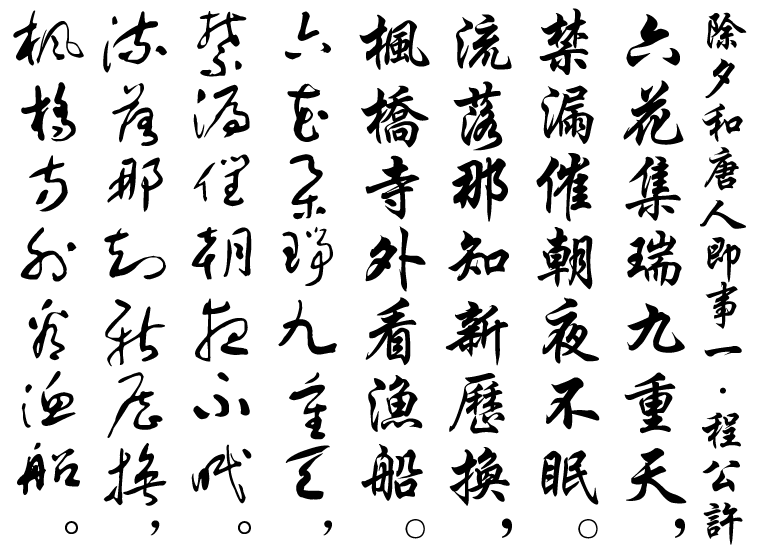 除夕和唐人即事一·程公許
六花集瑞九重天，
禁漏催朝夜不眠。
流落那知新歷換，
楓橋寺外看漁船。
六花集瑞九重天，
禁漏催朝夜不眠。
流落那知新歷換，
楓橋寺外看漁船。